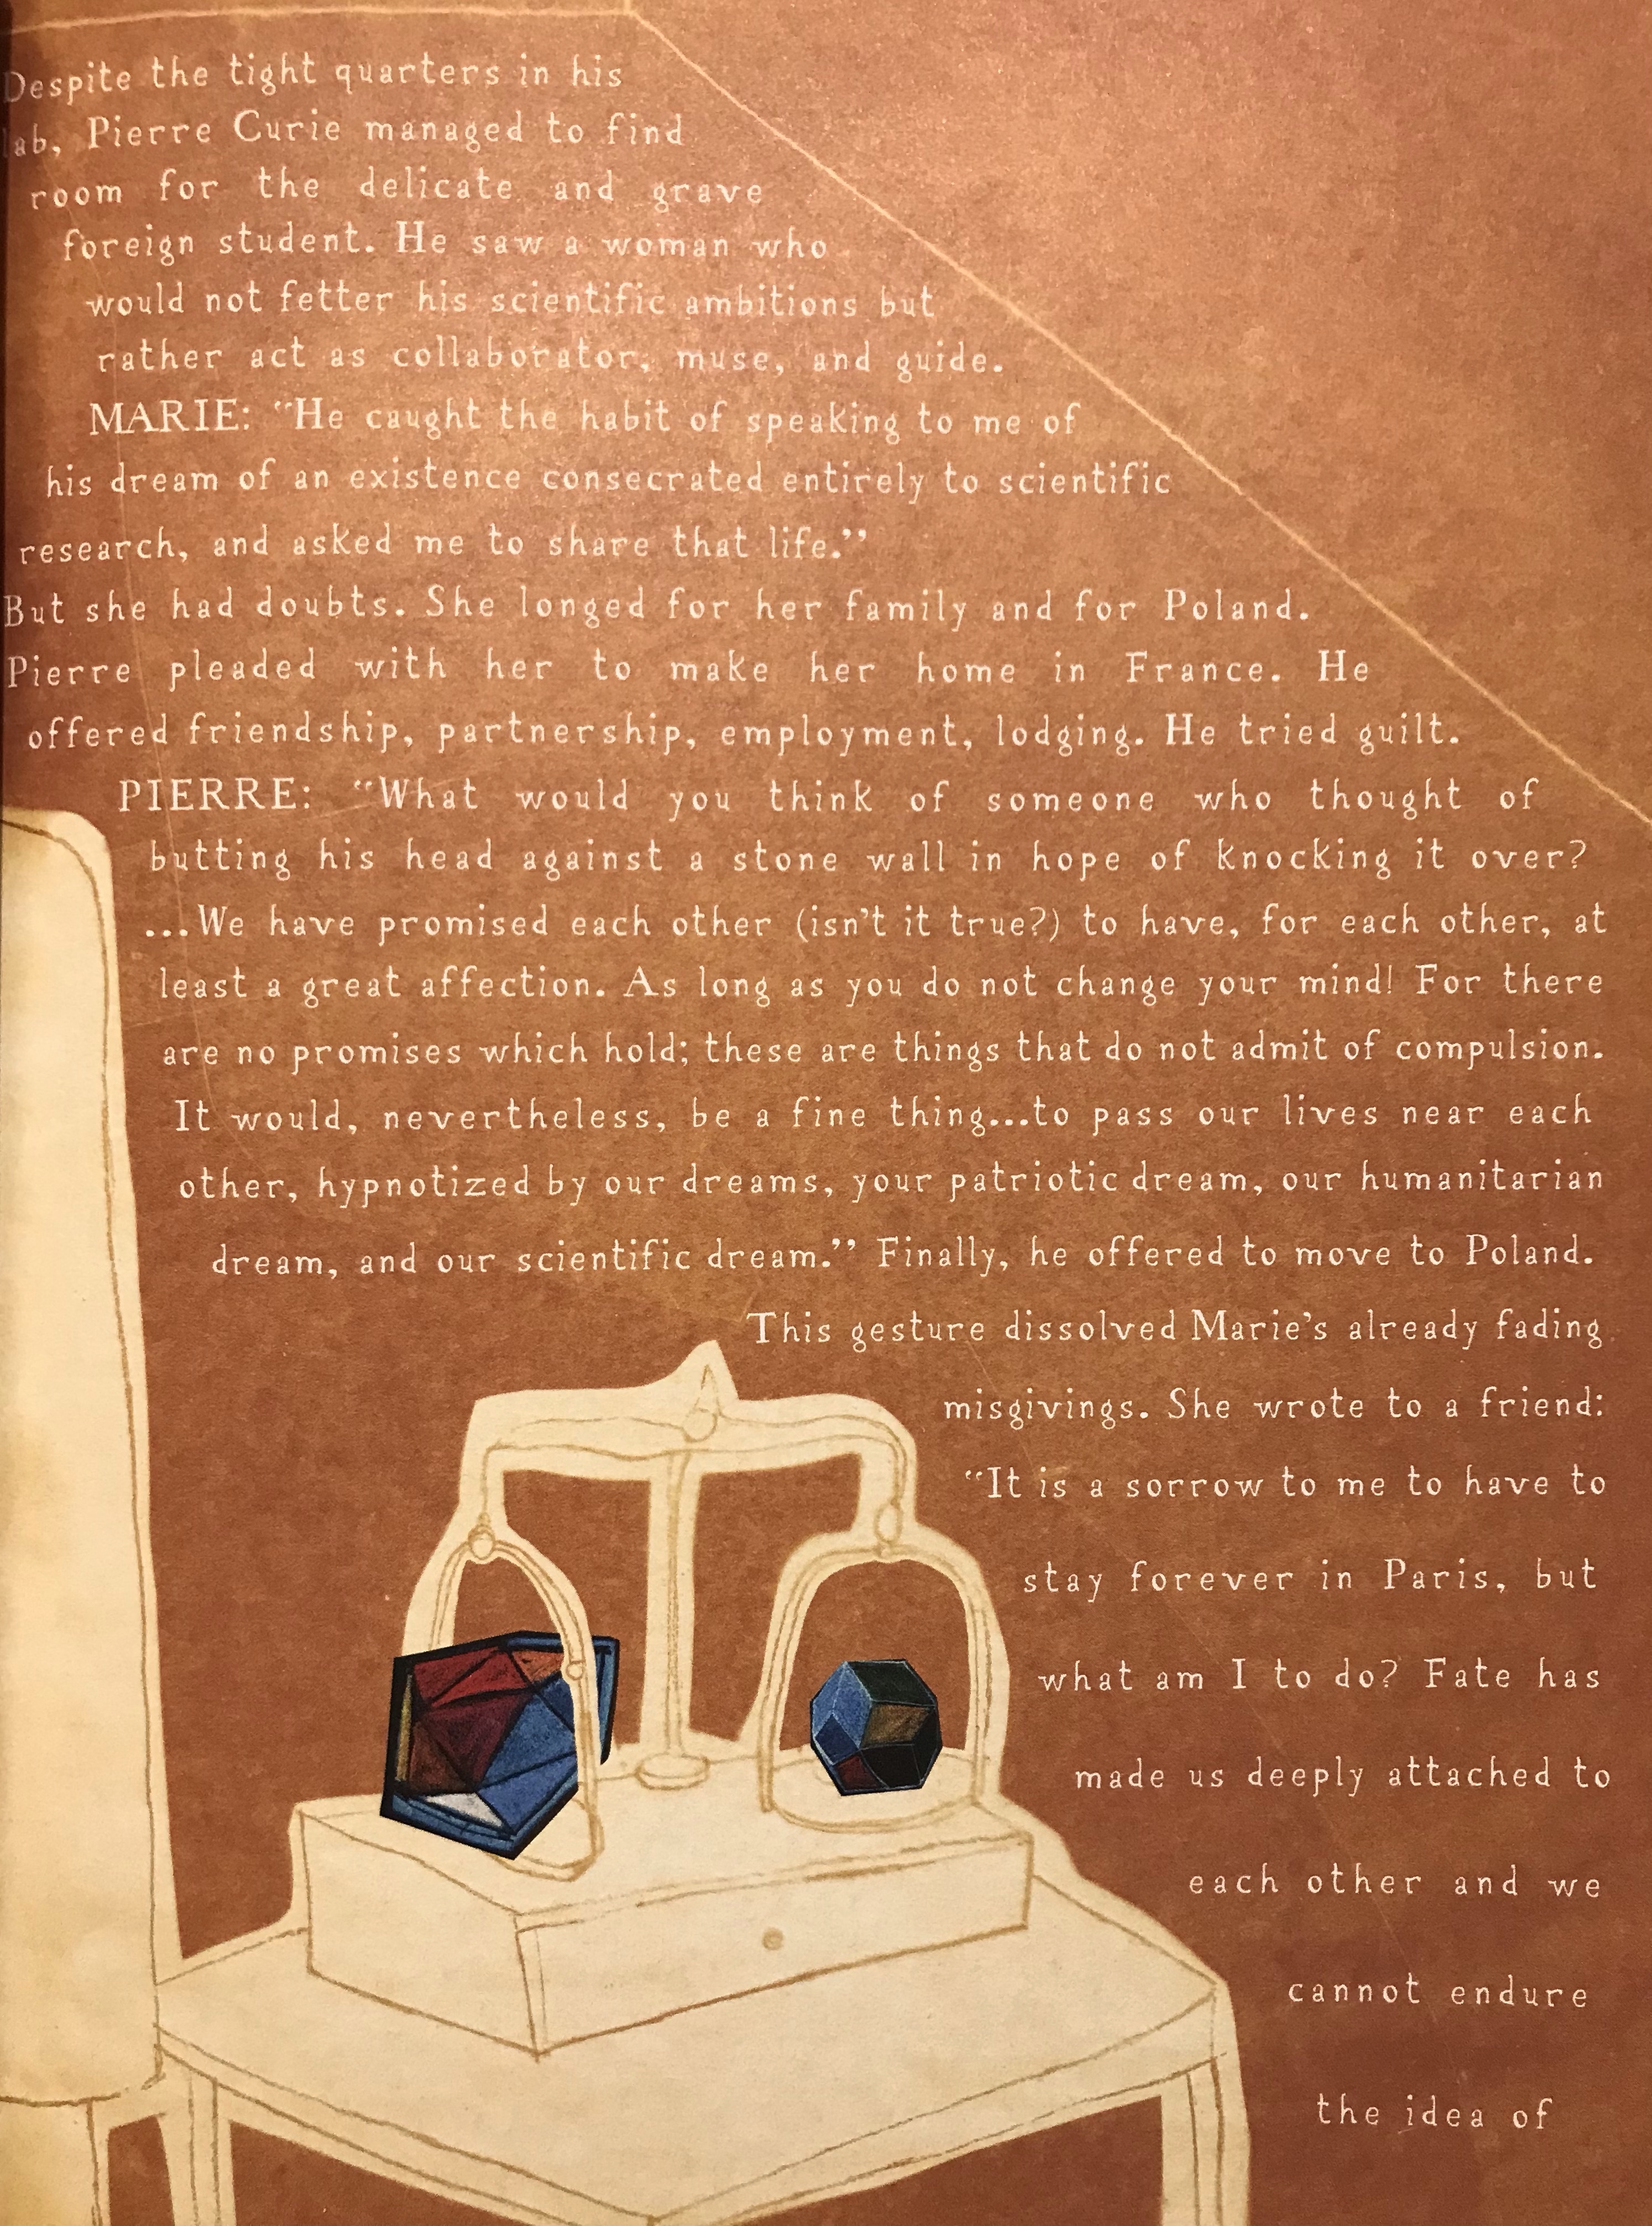 Despite the tight quarters in his
lab, Pierre Curie managed to find
room for the delicate and grave
foreign student. He saw a woman who
would not fetter his scientific ambitions but
rather act as collaborator, muse, and guide.
MARIE: “He caught the habit of speaking to me of
his dream of an existence consecrated entirely to scientific
research, and asked me to share that life.”
But she had doubts. She longed for her family and for Poland.
Pierre pleaded with her to make her home in France. He
offered friendship, partnership, employment, lodging. He tried guilt.
PIERRE: “What would you think of someone who thought of
butting his head against a stone wall in hope of knocking it over?
...We have promised each other (isn’t it true?) to have, for each other, at
least a great affection. As long as you do not change your mind! For there
are no promises which hold; these are things that do not admit of compulsion.
It would, nevertheless, be a fine thing...to pass our lives near each
other, hypnotized by our dreams, your patriotic dream, our humanitarian
dream, and our scientific dream.” Finally, he offered to move to Poland.
This gesture dissolved Marie’s already fading
misgivings. She wrote to a friend:
“It is a sorrow to me to have to
stay forever in Paris, but
what am I to do? Fate has
made us deeply attached to
each other and we
cannot endure
the idea of